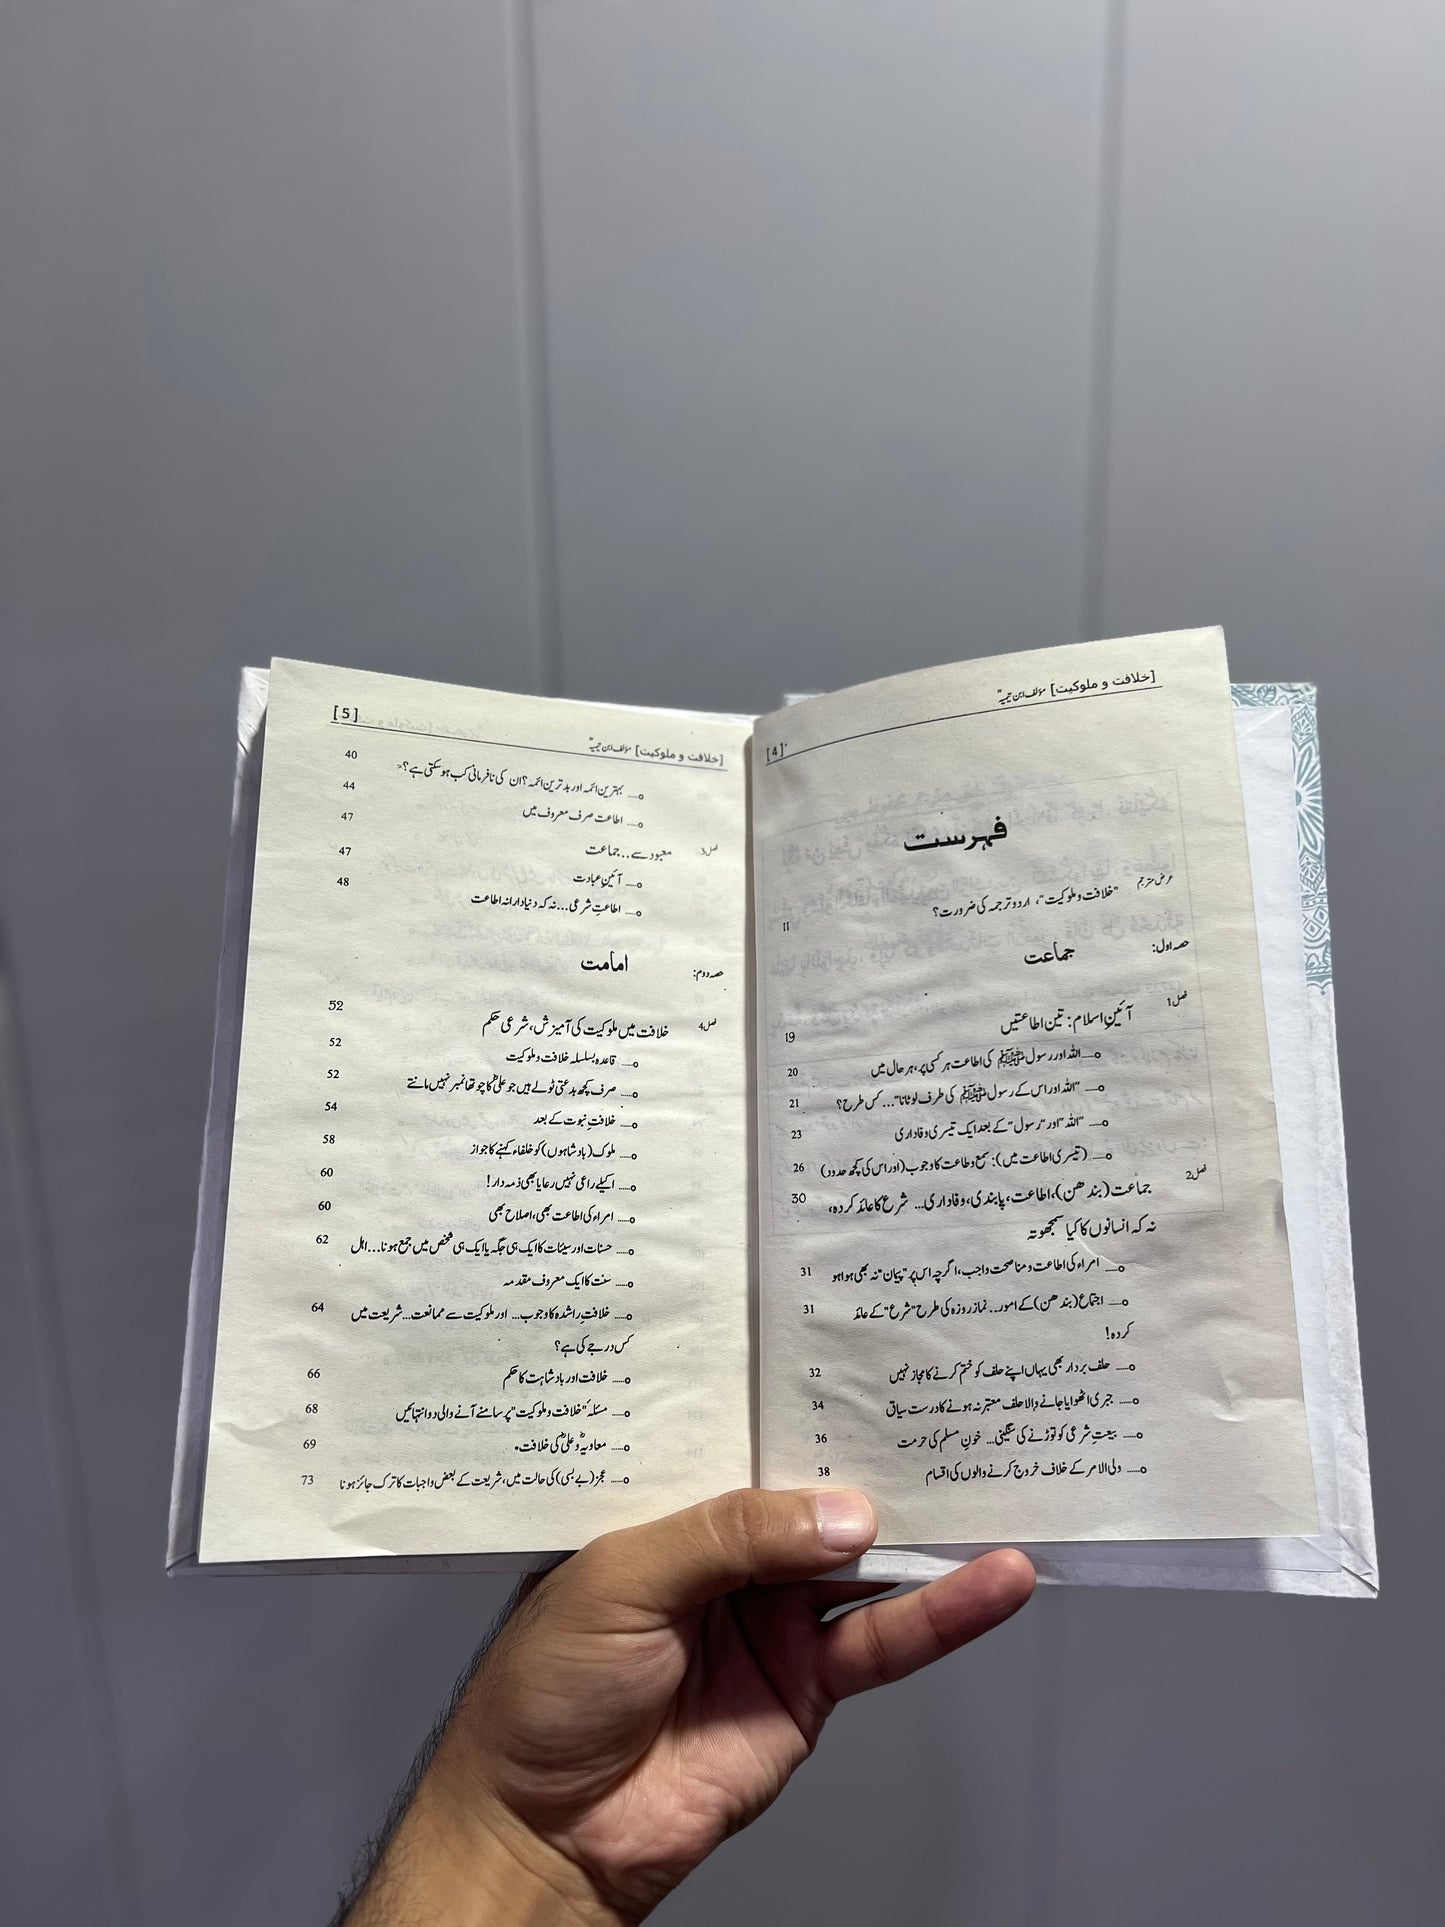 [خلافت و ملوکیت] مؤلف ابن تیمیہؒ [4]
فہرست
عرض مترجم
"خلافت و ملوکیت"، اردو ترجمہ کی ضرورت؟ 11
حصہ اول: جماعت
فصل 1 آئینِ اسلام: تین اطاعتیں 19
o..... اللہ اور رسول ﷺ کی اطاعت ہر کسی پر، ہر حال میں 20
o..... "اللہ اور اس کے رسول ﷺ کی طرف لوٹانا"... کس طرح؟ 21
o..... "اللہ" اور "رسول" کے بعد ایک تیسری وفاداری 23
o..... (تیسری اطاعت میں): سمع و طاعت کا وجوب (اور اس کی کچھ حدود) 26
فصل 2 جماعت (بندھن)، اطاعت، پابندی، وفاداری... شرع کا عائد کردہ، 30
نہ کہ انسانوں کا کیا سمجھوتہ
o..... امراء کی اطاعت و مناصحت واجب، اگرچہ اس پر "پیمان" نہ بھی ہوا ہو 31
o..... اجتماع (بندھن) کے امور... نماز روزہ کی طرح "شرع" کے عائد 31
کردہ!
o..... حلف بردار بھی یہاں اپنے حلف کو ختم کرنے کا مجاز نہیں 32
o..... جبری اٹھوایا جانے والا حلف معتبر نہ ہونے کا درست سیاق 34
o..... بیعتِ شرعی کو توڑنے کی سنگینی... خونِ مسلم کی حرمت 36
o..... ولی الامر کے خلاف خروج کرنے والوں کی اقسام 38
[خلافت و ملوکیت] مؤلف ابن تیمیہؒ [5]
o..... بہترین ائمہ اور بدترین ائمہ؟ ان کی نافرمانی کب ہوسکتی ہے؟ 40
o..... اطاعت صرف معروف میں 44
فصل 3 معبود سے... جماعت 47
o..... آئینِ عبادت 47
o..... اطاعتِ شرعی... نہ کہ دنیادارانہ اطاعت 48
حصہ دوم: امامت
فصل 4 خلافت میں ملوکیت کی آمیزش، شرعی حکم 52
o..... قاعدہ بسلسلہ خلافت و ملوکیت 52
o..... صرف کچھ بدعتی ٹولے ہیں جو علیؓ کا چوتھا نمبر نہیں مانتے 52
o..... خلافتِ نبوت کے بعد 54
o..... ملوک (بادشاہوں) کو خلفاء کہنے کا جواز 58
o..... اکیلے راعی نہیں رعایا بھی ذمہ دار! 60
o..... امراء کی اطاعت بھی، اصلاح بھی 60
o..... حسنات اور سیئات کا ایک ہی جگہ یا ایک ہی شخص میں جمع ہونا... اہل 62
o..... سنت کا ایک معروف مقدمہ
o..... خلافتِ راشدہ کا وجوب... اور ملوکیت سے ممانعت... شریعت میں 64
کس درجے کی ہے؟
o..... خلافت اور بادشاہت کا حکم 66
o..... مسئلہ "خلافت و ملوکیت" پر سامنے آنے والی دو انتہائیں 68
o..... معاویہؓ و علیؓ کی خلافت 69
o..... عجز (بے بسی) کی حالت میں، شریعت کے بعض واجبات کا ترک جائز ہونا 73